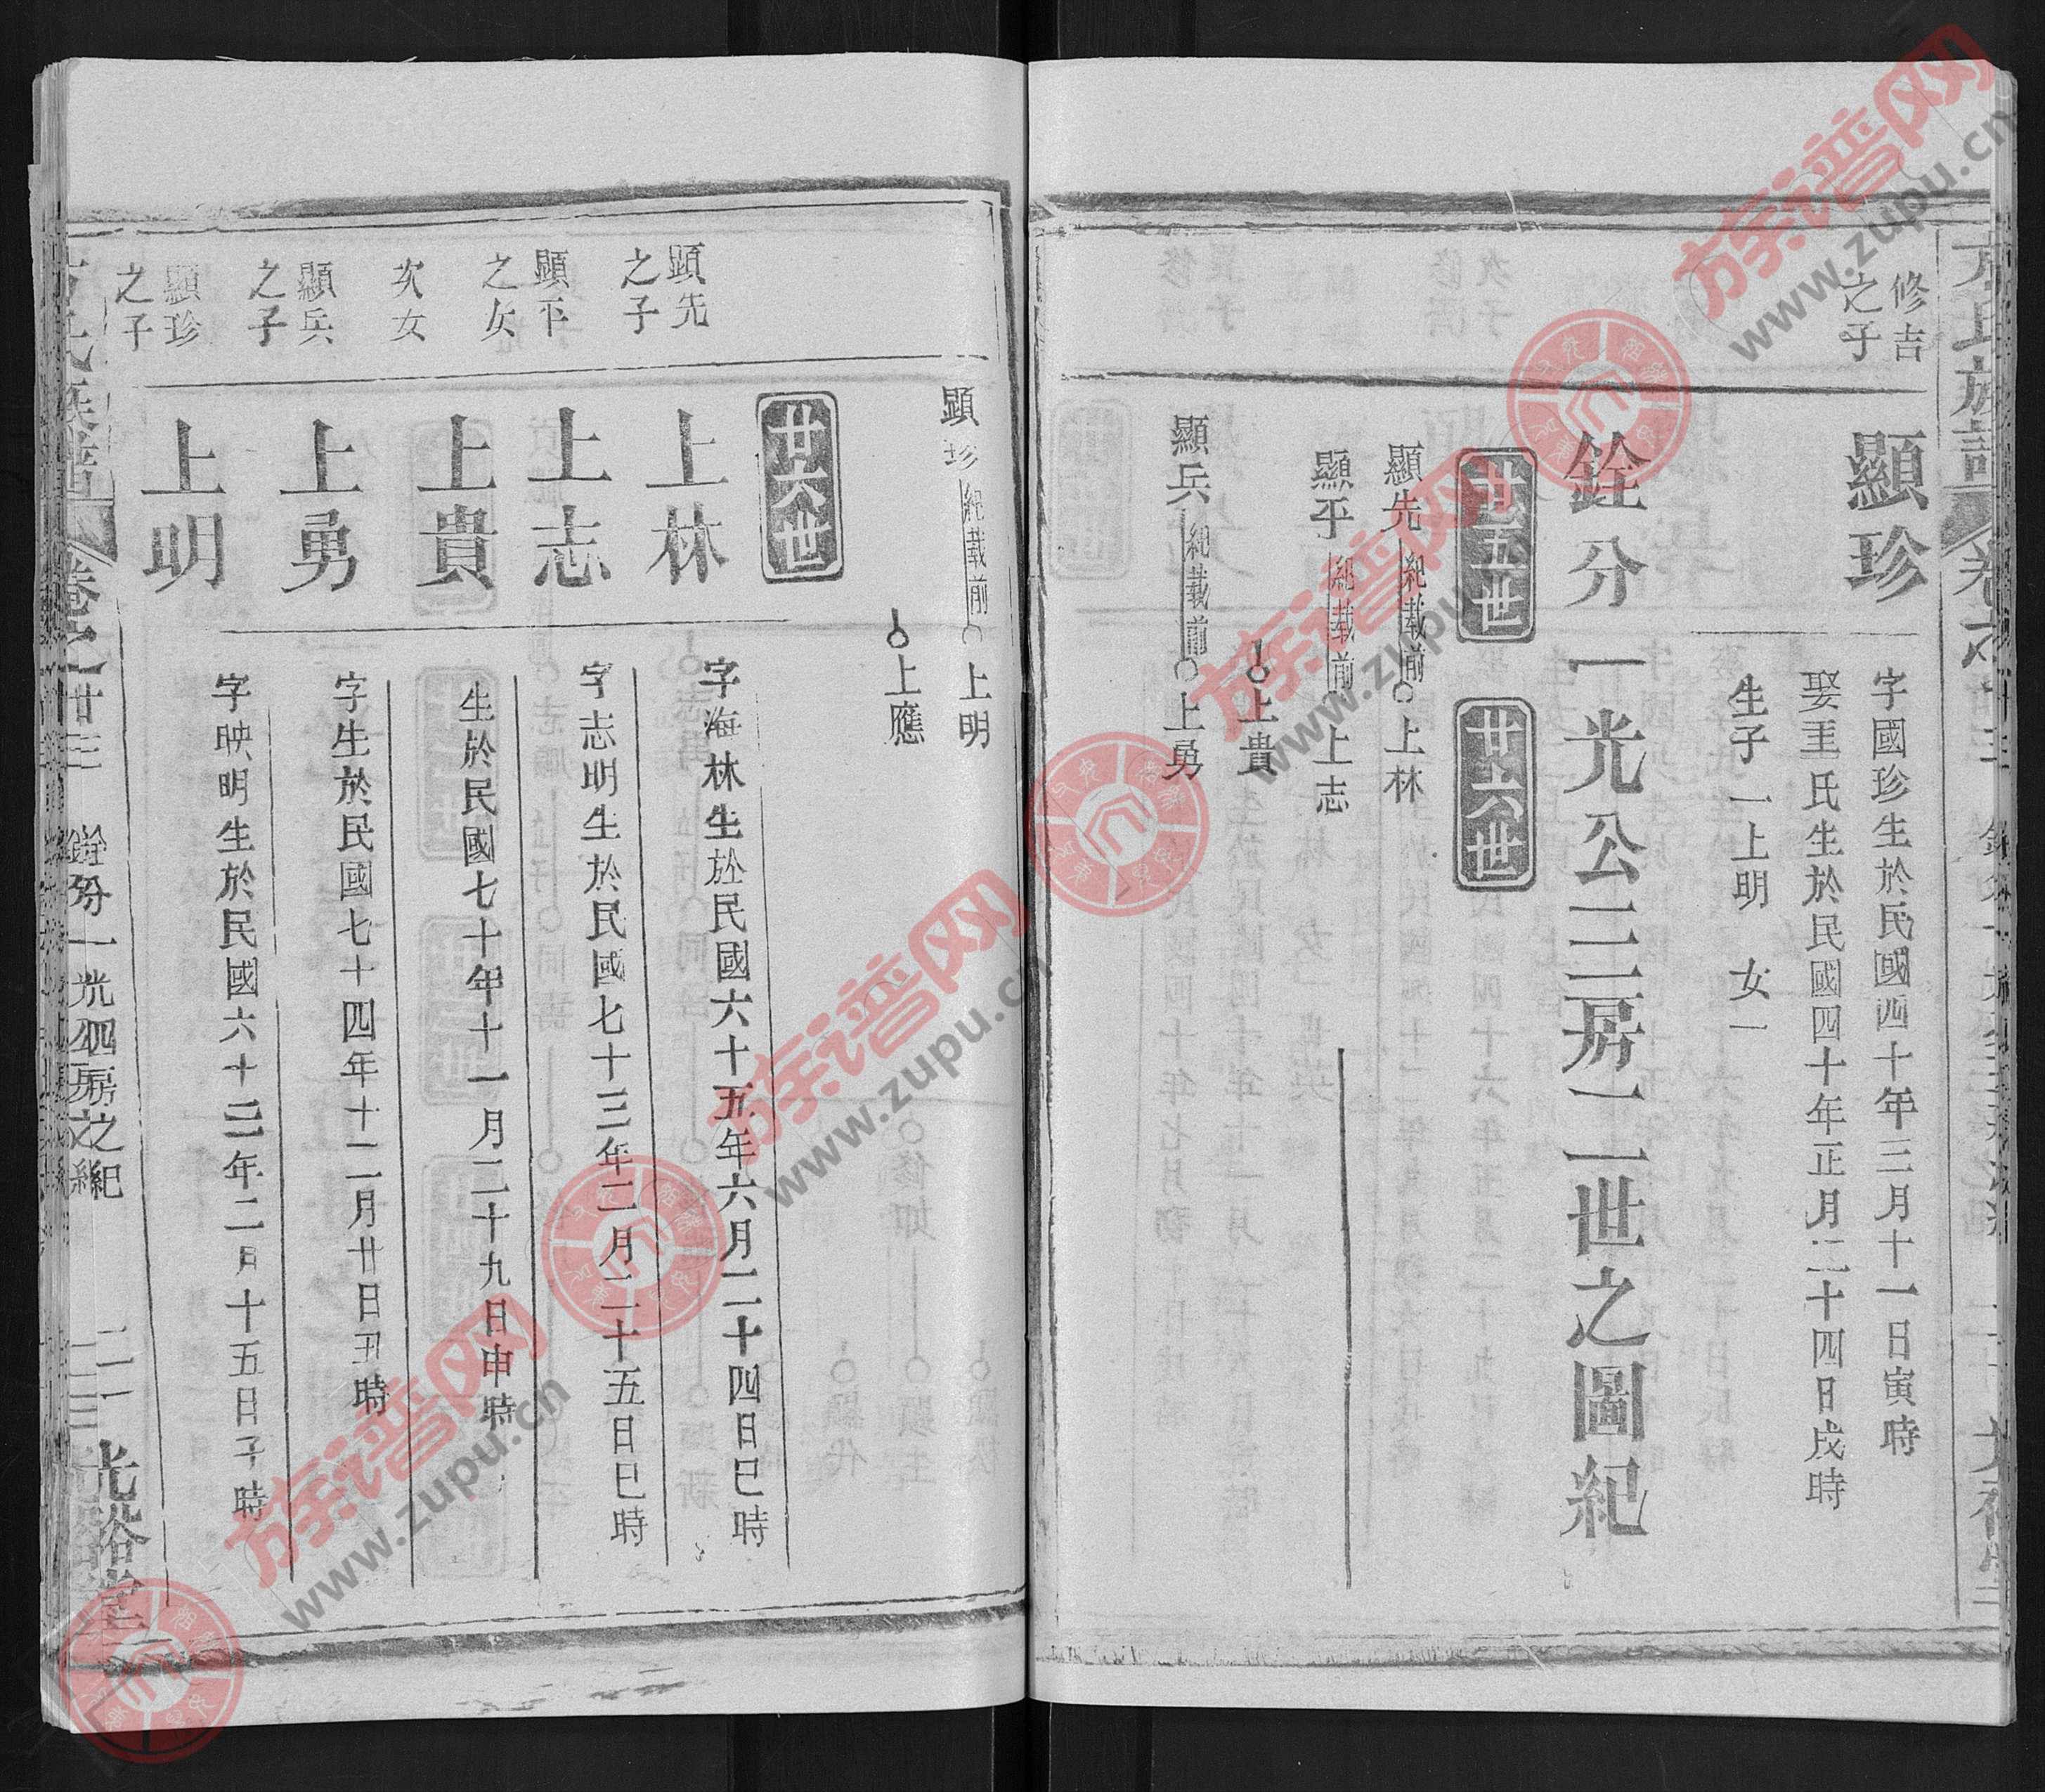 修吉
之子
顯珍
字國珍生於民國四十年三月十一日寅時
娶王氏生於民國四十年正月二十四日戌時
生子一上明 女一
銓分一光公三房二二世之圖紀
廿五世
廿六世
顯先 紀載前 上林
顯平 紀載前 上志
上貴
顯兵 紀載前 上勇
顯珍 紀載前 上明
上應
廿六世
顯先
之子
上林
字海林生於民國六十五年六月二十四日巳時
顯平
之女
上志
字志明生於民國七十三年二月二十五日巳時
次女
上貴
生於民國七十年十一月二十九日申時
顯兵
之子
上勇
字生於民國七十四年十二月廿日丑時
顯珍
之子
上明
字映明生於民國六十三年二月十五日子時
氏族譜
卷之廿三
光裕堂
族谱网
www.zupu.cn